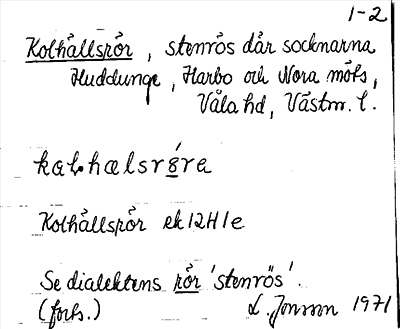 1-2
Kolhållsrör, stenrös där socknarna
Huddunge, Harbo och Nora möts,
Våla hd, Västm. l.
Kolhållsrör ek 12H1e
Se dialektens rör 'stenrös'.
(forts.) L. Jonsson 1971